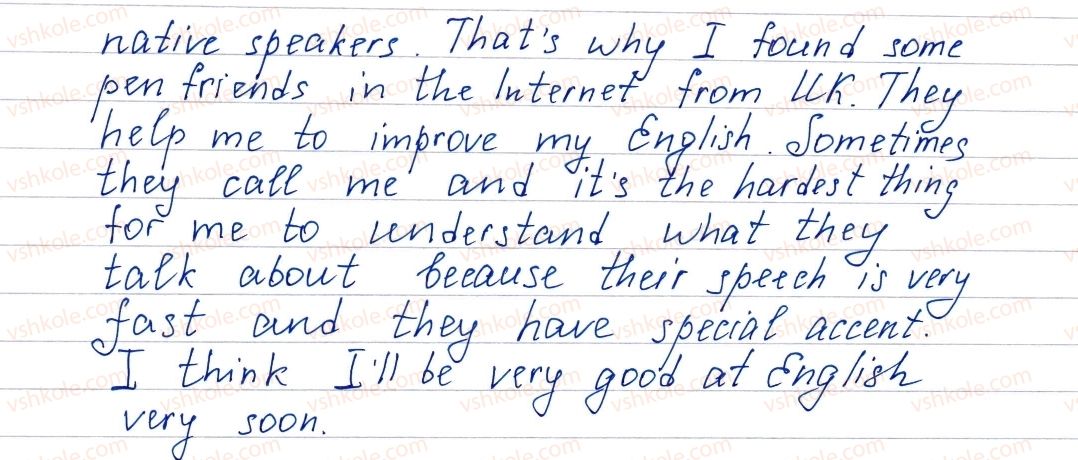 native speakers. That's why I found some
pen friends in the Internet from UK. They
help me to improve my English. Sometimes
they call me and it's the hardest thing
for me to understand what they
talk about because their speech is very
fast and they have special accent.
I think I'll be very good at English
very soon.